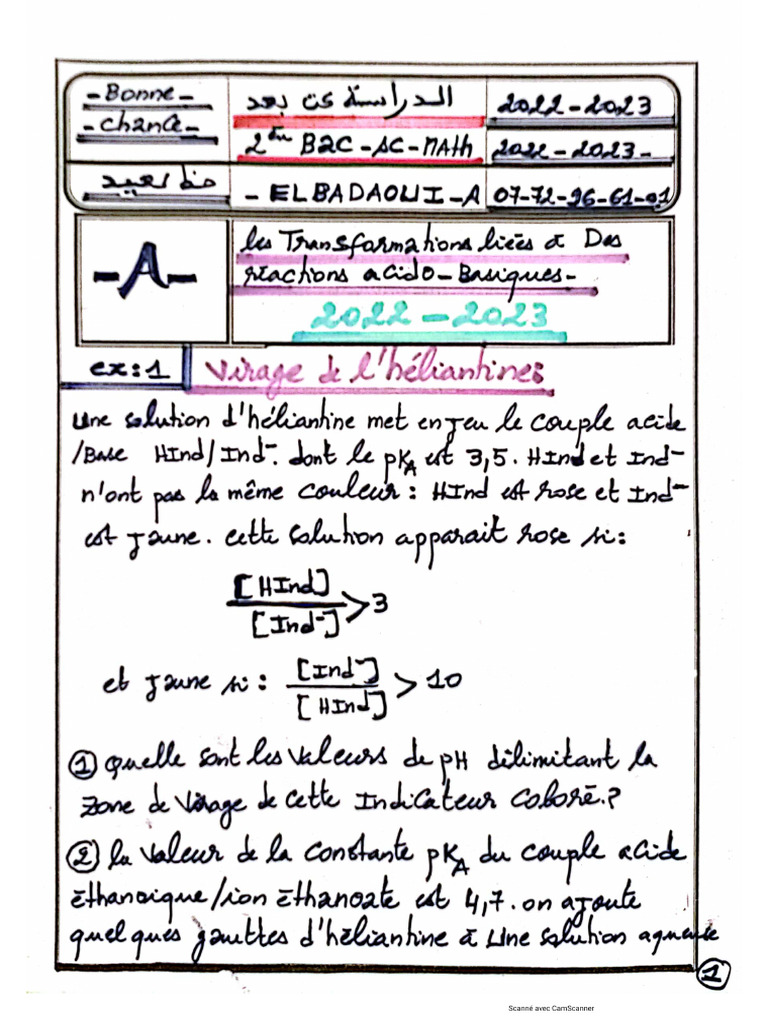 -Bonne-
-chance-
الدراسة عن بعد
2022-2023
2ème B2C-SC-MATH
2022-2023-
حظ سعيد
-ELBADAOUI-A
07-72-96-61-01
-A-
les Transformations liées à Des
réactions acido-Basiques-
2022-2023
ex:1
Virage de l'héliantine:
une solution d'héliantine met en jeu le couple acide
/Base HInd/Ind⁻. dont le pKA est 3,5. HInd et Ind⁻
n'ont pas la même couleur : HInd est rose et Ind⁻
est jaune. cette solution apparait rose si:
[HInd]/[Ind⁻] > 3
et jaune si : [Ind⁻]/[HInd] > 10
① Quelle sont les valeurs de pH délimitant la
zone de virage de cette Indicateur coloré.?
② la valeur de la constante pKA du couple acide
éthanoique/ion éthanoate est 4,7. on ajoute
quelques gouttes d'héliantine à une solution aqueuse
①
Scanné avec CamScanner